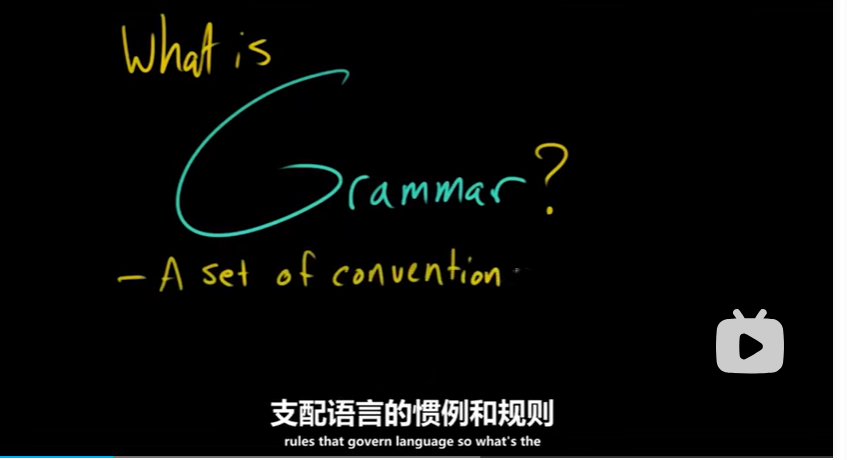 What is
Grammar?
- A set of convention
支配语言的惯例和规则
rules that govern language so what's the